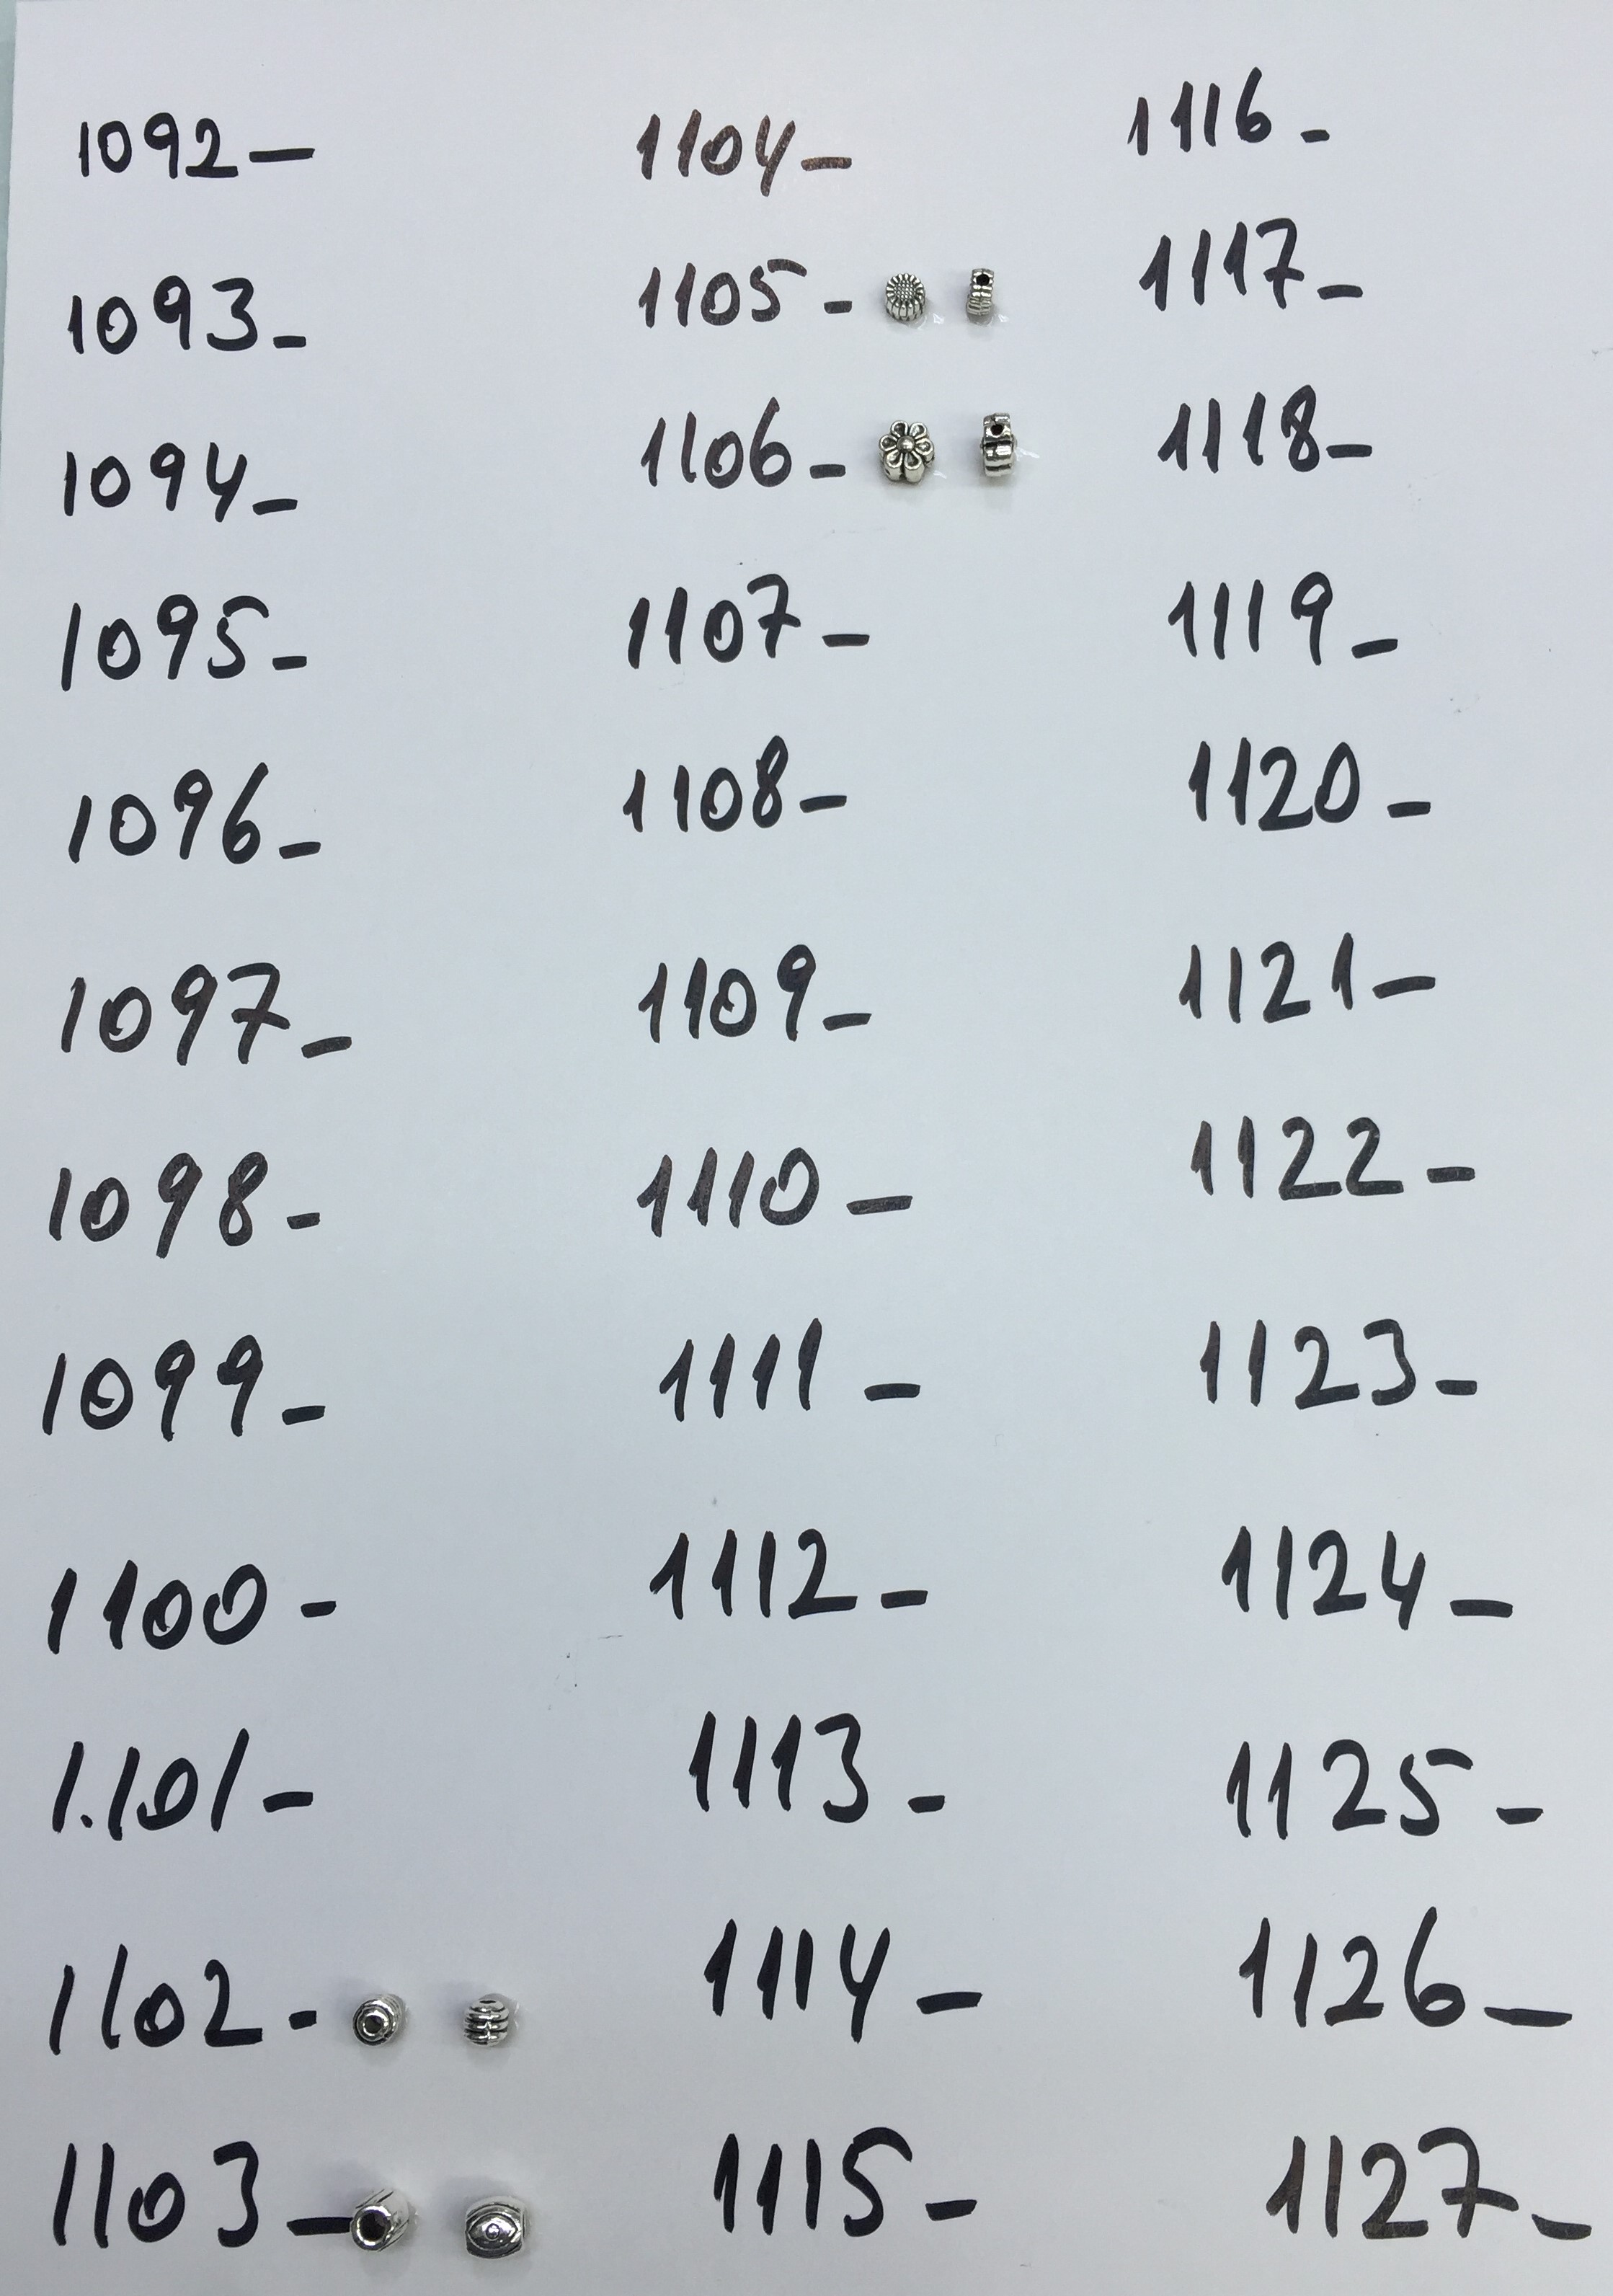 1092-
1093-
1094-
1095-
1096-
1097-
1098-
1099-
1100-
1.101-
1102-
1103-
1104-
1105-
1106-
1107-
1108-
1109-
1110-
1111-
1112-
1113-
1114-
1115-
1116-
1117-
1118-
1119-
1120-
1121-
1122-
1123-
1124-
1125-
1126-
1127-